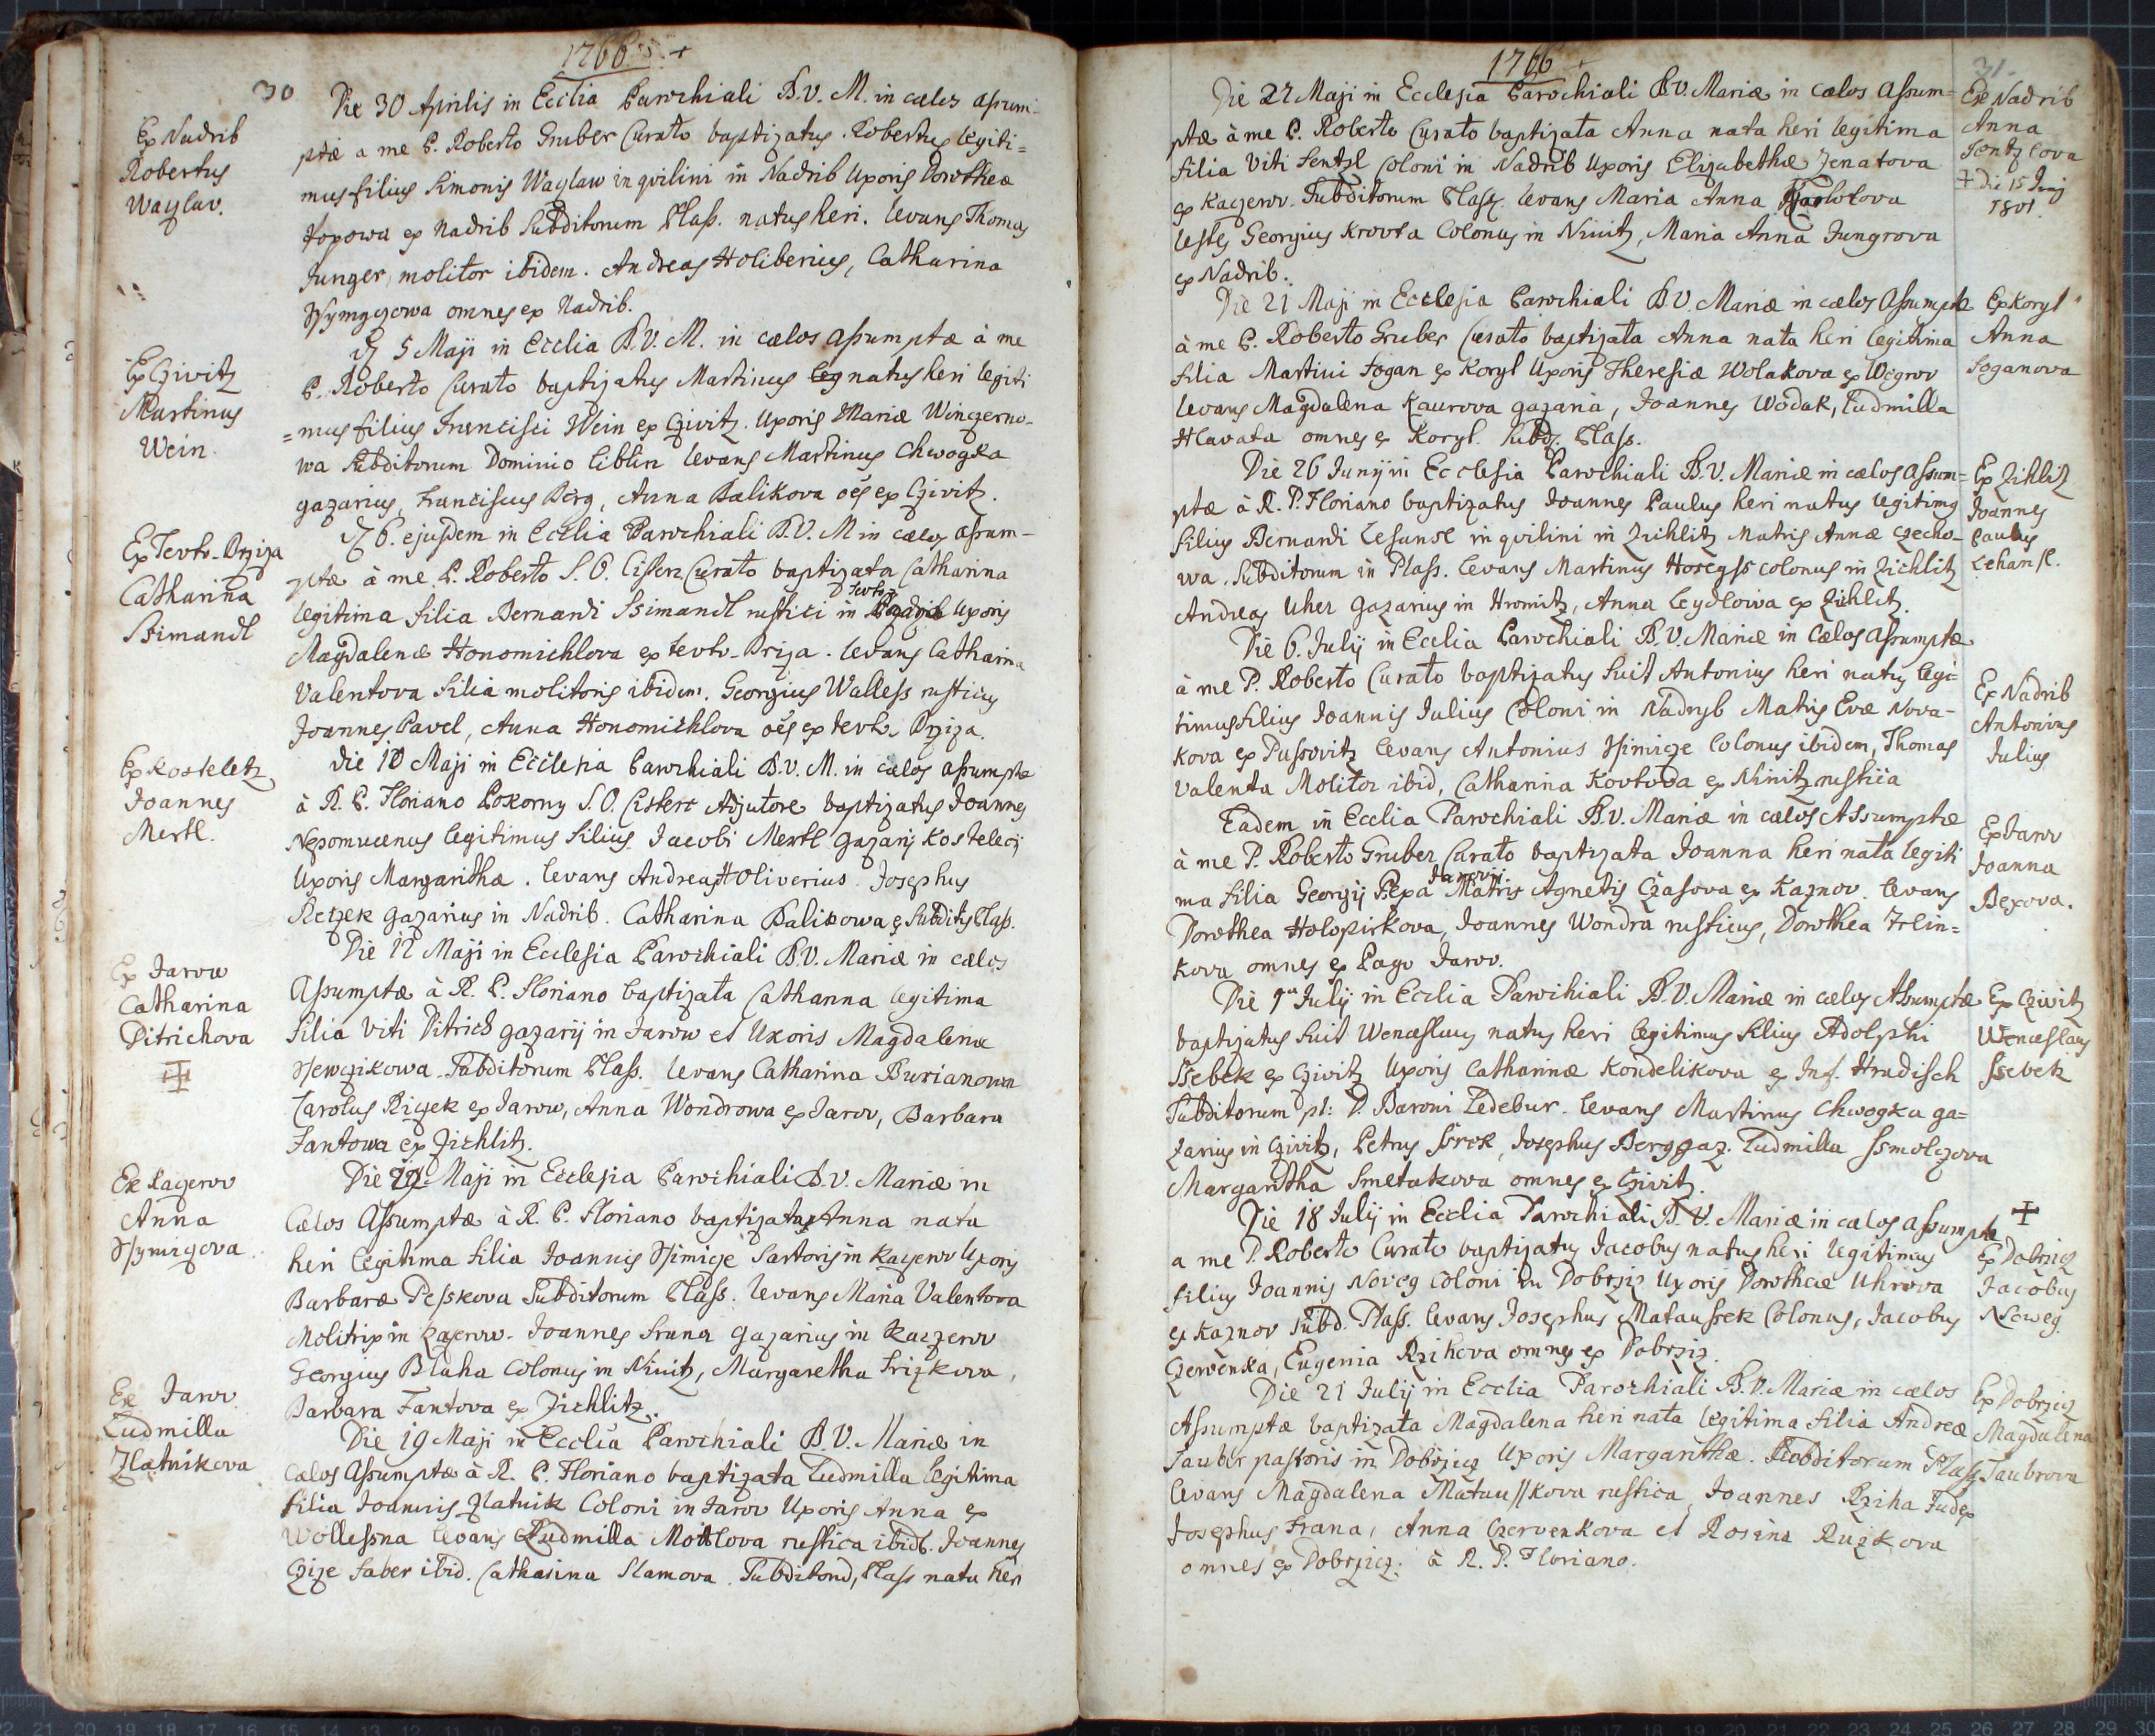 1766
30
Die 30 Aprilis in Ecclia Parochiali B.V.M. in cælos assum-
ptæ a me P. Roberto Gruber Curato baptizatus Robertus legiti=
mus filius Simonis Waylaw inqvilini in Nadrib Uxoris Dorotheæ
ex Nadrib Subditorum Plass. natus heri. levans Thomas
Junger, molitor ibidem. Andreas Holiberius, Catharina
omnes ex Nadrib.
Ex Nadrib
Robertus
Waylav.
5 Maji in Ecclia B.V.M. in cælos assumptæ à me
P. Roberto Curato baptizatus Martinus leg natus heri legiti
=mus filius Francisci Wein ex Czivitz. Uxoris Mariæ Winczerno-
wa Subditorum Dominio Liblin levans Martinus Chwogka
gazarius, Franciscus Berg, Anna Balikova oẽs ex Czivitz.
Ex Czivitz
Martinus
Wein.
6. ejusdem in Ecclia Parochiali B.V.M in cælos assum-
ptæ à me P. Roberto S.O. Cisterc. Curato baptizata Catharina
legitima filia Bernardi Ssimandl rustici in Uxoris
Magdalenæ Honomichlova ex tevto-Briza. levans Catharina
Valentova filia molitoris ibidem. Georgius Walless rusticus
Joannes Pavel, Anna Honomichlova oẽs ex tevto Brziza.
Ex Tevto-Brziza
Catharina
Ssimandl
Die 10 Maji in Ecclesia Parochiali B.V.M. in cælos assumptæ
à R.P. Floriano Pokorny S.O. Cisterc Adjutore baptizatus Joannes
Nepomucenus legitimus filius Jacobi Mertl gazarij Kostelecij
Uxoris Margarithæ. levans Andreas Holiverius. Josephus
Reczek gazarius in Nadrib. Catharina Balikowa ex Subditis Plass.
Ex Kosteletz
Joannes
Mertl.
Die 12 Maji in Ecclesia Parochiali B.V. Mariæ in cælos
Assumptæ à R.P. Floriano baptizata Catharina legitima
filia Viti Ditrich gazarij in Jarow et Uxoris Magdalenæ
Subditorum Plass. levans Catharina Burianowa
Carolus ex Jarow, Anna Wondrowa ex Jarov, Barbara
Fantowa ex Zichlitz.
Ex Jarow
Catharina
Ditrichova
Die Maji in Ecclesia Parochiali B.V. Mariæ in
Cælos Assumptæ à R.P. Floriano baptizata Anna nata
heri legitima filia Joannis Sartoris in Kaczerov Uxoris
Barbaræ Pesskova Subditorum Plass. levans Maria Valentova
Molitrix in Kaczerov. Joannes Srana gazarius in Kaczerov
Georgius Blaha colonus in Ninitz, Margaretha Frizkova,
Barbara Fantova ex Zichlitz.
Ex Kaczerov
Anna
Die 19 Maji in Ecclia Parochiali B.V. Mariæ in
Cælos Assumptæ à R.P. Floriano baptizata Ludmilla legitima
filia Joannis Zlatnik Coloni in Jarov Uxoris Anna ex
Wollessna levans Ludmilla rustica ibid. Joannes
Czize faber ibid. Catharina Slamova. Subditorū, Plass nata heri
Ex Jarov
Ludmilla
Zlatnikova
1766
31.
Die 22 Maji in Ecclesia Parochiali B.V. Mariæ in cælos Assum=
ptæ à me P. Roberto Curato baptizata Anna nata heri legitima
filia Viti Jentzl Coloni in Nadrib Uxoris Elizabethæ Jenatova
ex Kaczerov. Subditorum Plass. levans Maria Anna
testes Georgius Krovta Colonus in Ninitz, Maria Anna Jungrova
ex Nadrib.
Ex Nadrib
Anna
Jentzlova
Die 15 Junij
1801.
Die 21 Maji in Ecclesia Parochiali B.V. Mariæ in cælos Assumptæ
à me P. Roberto Gruber Curato baptizata Anna nata heri legitima
filia Martini Sogan ex Koryt Uxoris Theresiæ Wolakova ex Wegrov
levans Magdalena Kaurova gazaria, Joannes Wodak, Ludmilla
Hlavata omnes ex Koryt. Subd. Plass.
Ex Koryt
Anna
Soganova
Die 26 Junij in Ecclesia Parochiali B.V. Mariæ in cælos Assum=
ptæ à R.P. Floriano baptizatus Joannes Paulus heri natus legitimus
filius Bernardi Lesansl inqvilini in Zichlitz Matris Annæ Czecho-
wa. Subditorum in Plass. levans Martinus Horegss colonus in Zichlitz
Andreas Uher gazarius in Hromitz, Anna Leydlowa ex Zichlitz.
Ex Zihlitz
Joannes
Paulus
Lehansl.
Die 6. Julij in Ecclia Parochiali B.V. Mariæ in Cælos Assumptæ
à me P. Roberto Curato baptizatus fuit Antonius heri natus legi=
timus filius Joannis Julius Coloni in Nadryb Matris Evæ Nova-
kova ex Pussovitz levans Antonius Colonus ibidem, Thomas
Valenta Molitor ibid, Catharina Kovtoda ex Ninitz rustica
Ex Nadrib
Antonius
Julius
Eadem in Ecclia Parochiali B.V. Mariæ in cælos Assumptæ
à me P. Roberto Gruber Curato baptizata Joanna heri nata legiti
Jarovij.
ma filia Georgij Pexa Matris Agnetis Czasova ex Kaznov. levans
Dorothea Holopirkova, Joannes Wondra rusticus, Dorothea Irlin=
kova omnes ex Pago Jarov.
Ex Jarov
Joanna
Bexova.
Die Julij in Ecclia Parochiali B.V. Mariæ in cælos Assumptæ
baptizatus fuit Wenceslaus natus heri legitimus filius Adolphi
Ssebek ex Czivitz Uxoris Catharinæ Kondelikova ex Inf. Hradisch
Subditorum pl: D. Baroni Ledebur. levans Martinus Chwogka ga=
zarius in Czivitz, Petrus Ssrek, Josephus Berg gaz. Ludmilla Ssmolczova
Margaritha Smetakova omnes ex Czivitz.
Ex Czivitz
Wenceslaus
Ssebek
Die 18 Julij in Ecclia Parochiali B.V. Mariæ in cælos assumptæ
a me P. Roberto Curato baptizatus Jacobus natus heri legitimus
filius Joannis Noveg coloni in Dobrziz Uxoris Dorotheæ Uhrova
ex Kaznov Subd. Plass. levans Josephus Mataussek Colonus, Jacobus
Czervenka, Eugenia Rzihova omnes ex Dobrziz.
Ex Dobrzicz
Jacobus
Noweg.
Die 21 Julij in Ecclia Parochiali B.V. Mariæ in cælos
Assumptæ baptizata Magdalena heri nata legitima filia Andreæ
Tauber pastoris in Dobrzicz Uxoris Margarithæ. Subditorum Plass
levans Magdalena Matausskova rustica, Joannes Rziha Judex
Josephus Srana, Anna Czervenkova et Rosina Ruzkova
omnes ex Dobrzicz. à R.P. Floriano.
Ex Dobrzicz
Magdalena
Taubrova